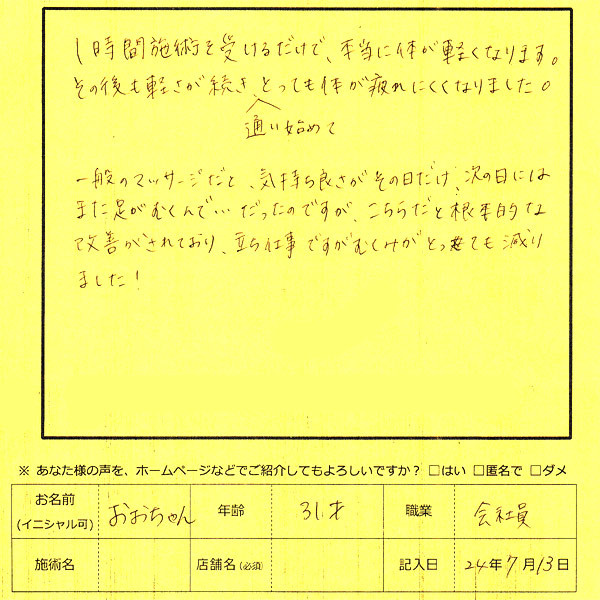 1時間施術を受けるだけで、本当に体が軽くなります。
その後も軽さが続き、とっても体が疲れにくくなりました。
通い始めて
一般のマッサージだと、気持ち良さがその日だけ、次の日には
また足がむくんで…だったのですが、こちらだと根本的な
改善がされており、立ち仕事ですがむくみがとっても減り
ました！
※ あなた様の声を、ホームページなどでご紹介してもよろしいですか？ □はい □匿名で □ダメ
お名前 (イニシャル可) おおちゃん 年齢 31才 職業 会社員
施術名 店舗名(必須) 記入日 24年7月13日